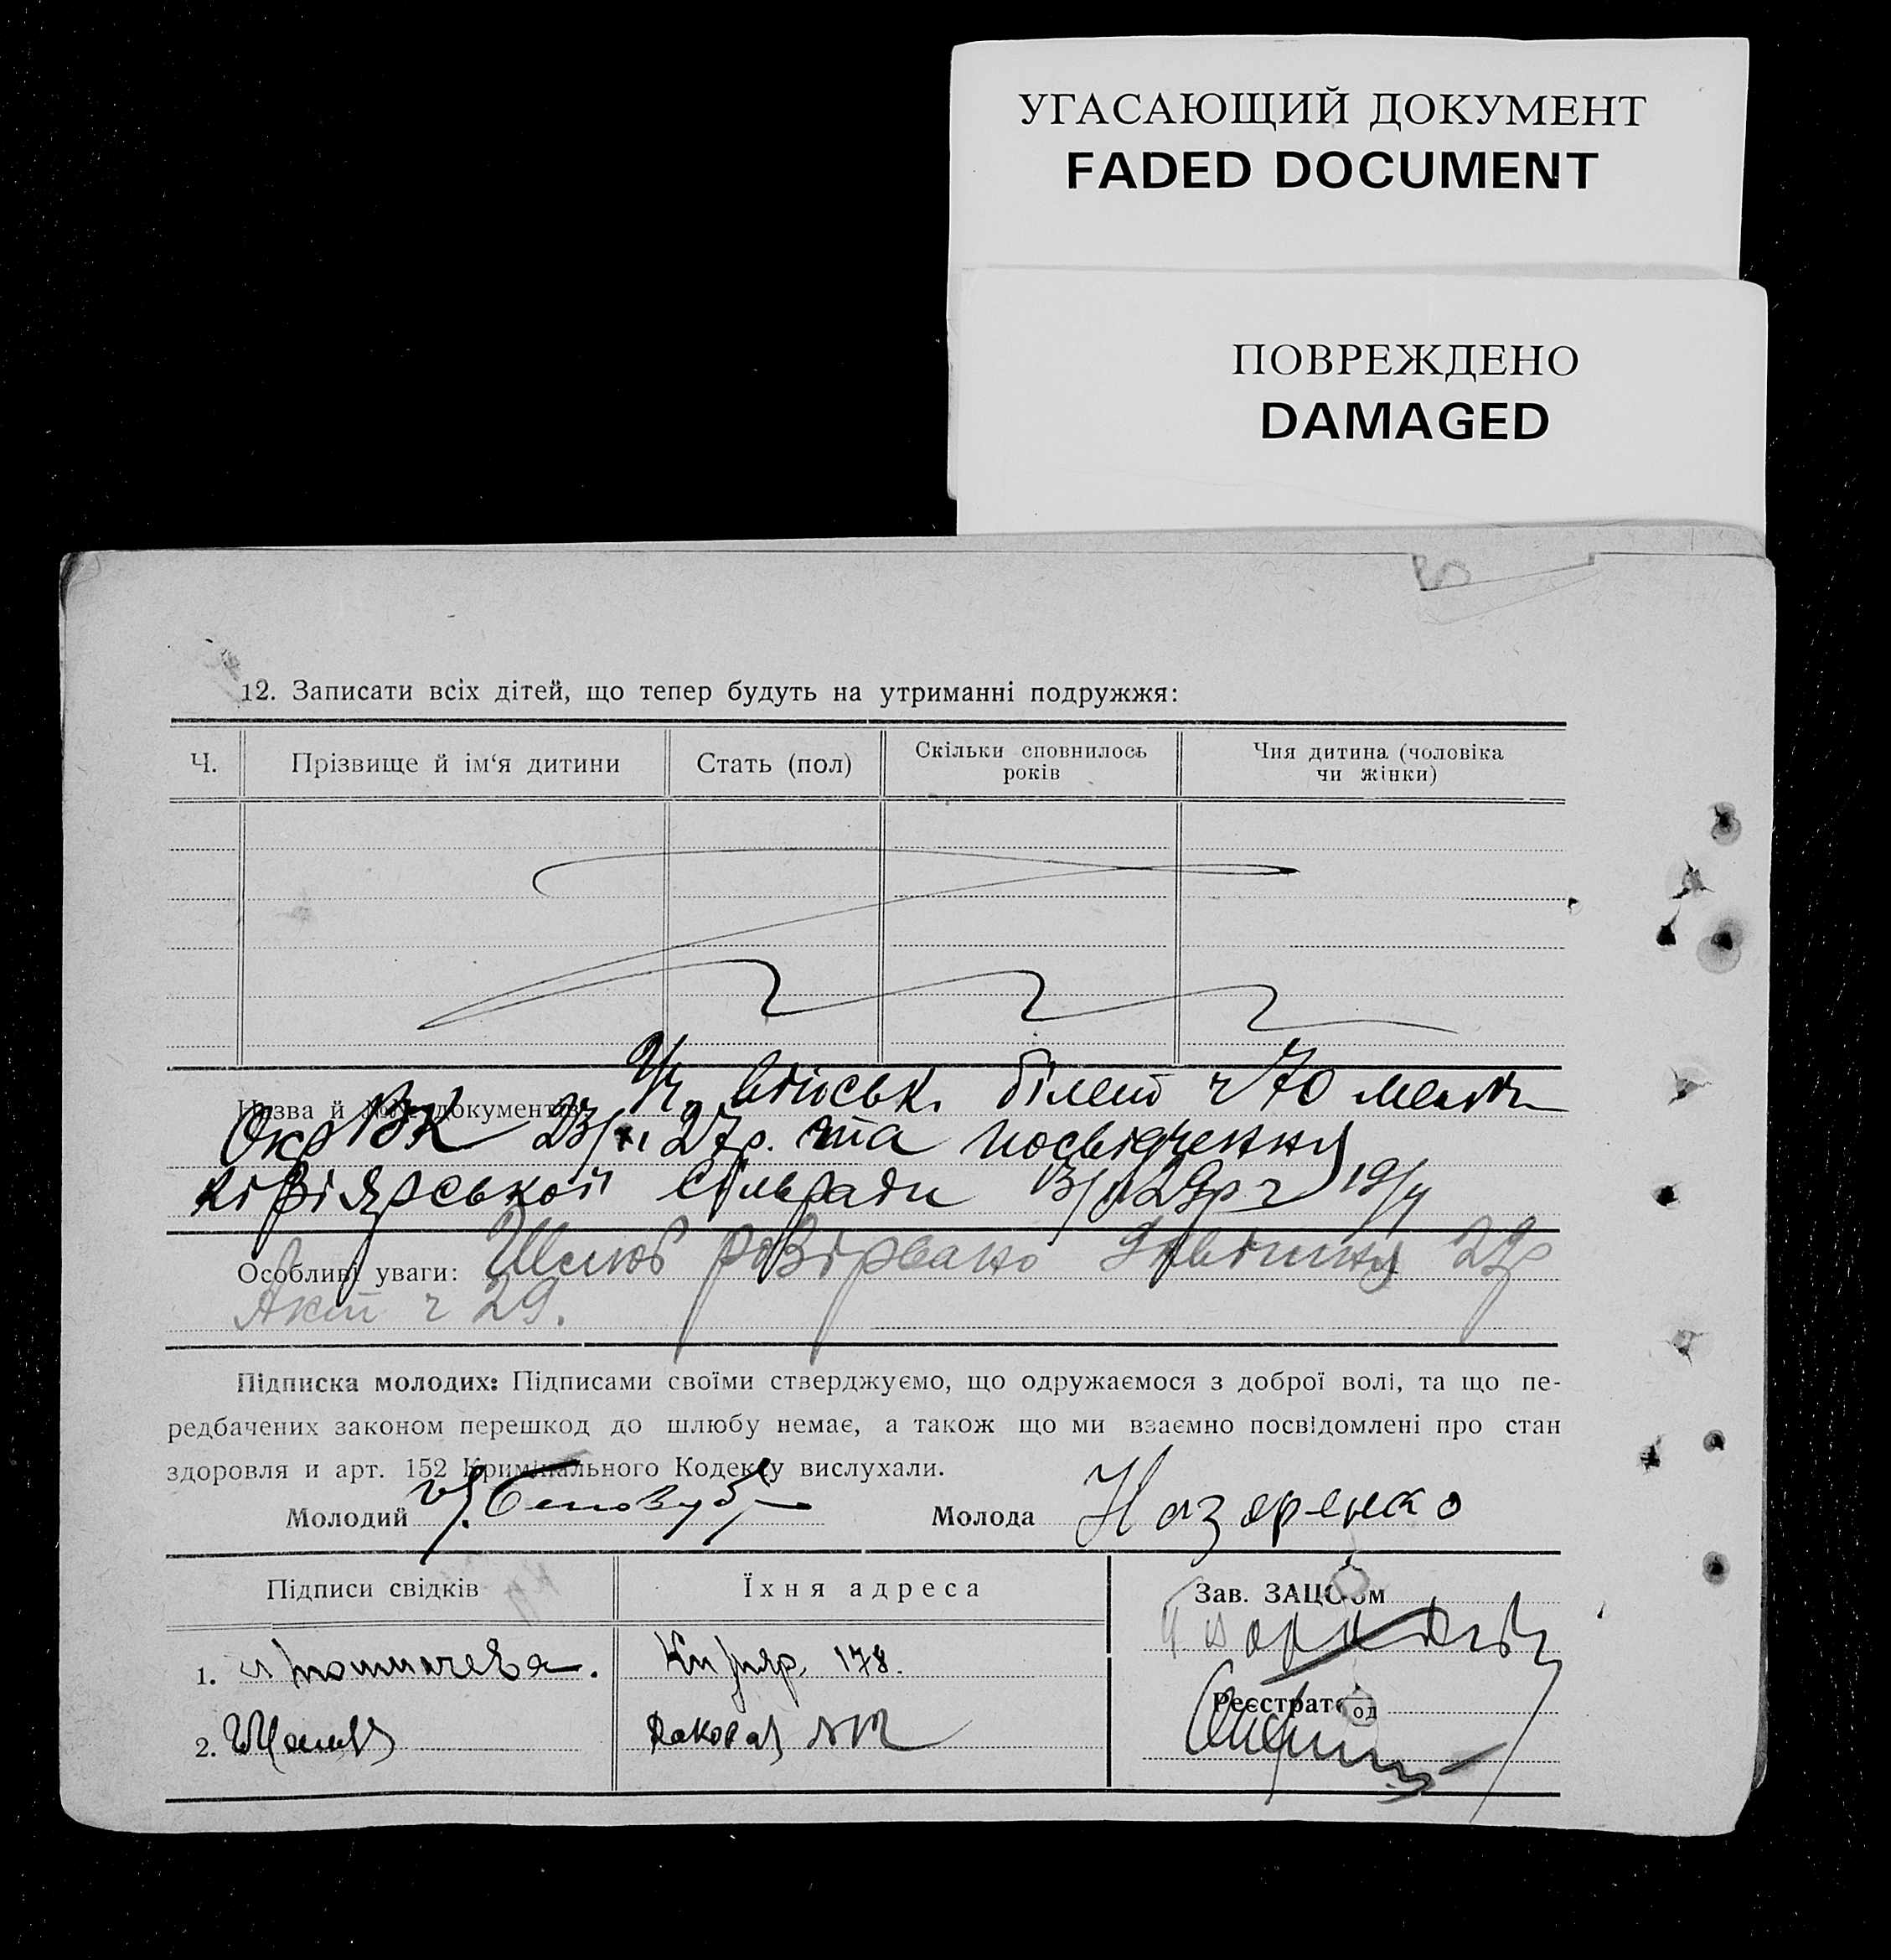 УГАСАЮЩИЙ ДОКУМЕНТ
FADED DOCUMENT
ПОВРЕЖДЕНО
DAMAGED
12. Записати всіх дітей, що тепер будуть на утриманні подружжя:
Ч. Прізвище й ім‘я дитини Стать (пол) Скільки сповнилось років Чия дитина (чоловіка чи жінки)
Назва й документів військ. білет ч 70
Окр ВК 23/ 27р. та посвідчення
сільради 29р ч 19/4
Особливі уваги: Шлюб розірвано 29р
Акт ч 29.
Підписка молодих: Підписами своїми стверджуємо, що одружаємося з доброї волі, та що пе-
редбачених законом перешкод до шлюбу немає, а також що ми взаємно посвідомлені про стан
здоровля и арт. 152 Кримінального Кодексу вислухали.
Молодий Молода Назаренко
Підписи свідків Їхня адреса Зав. ЗАЦСом
1. 178.
Реєстратор
2.